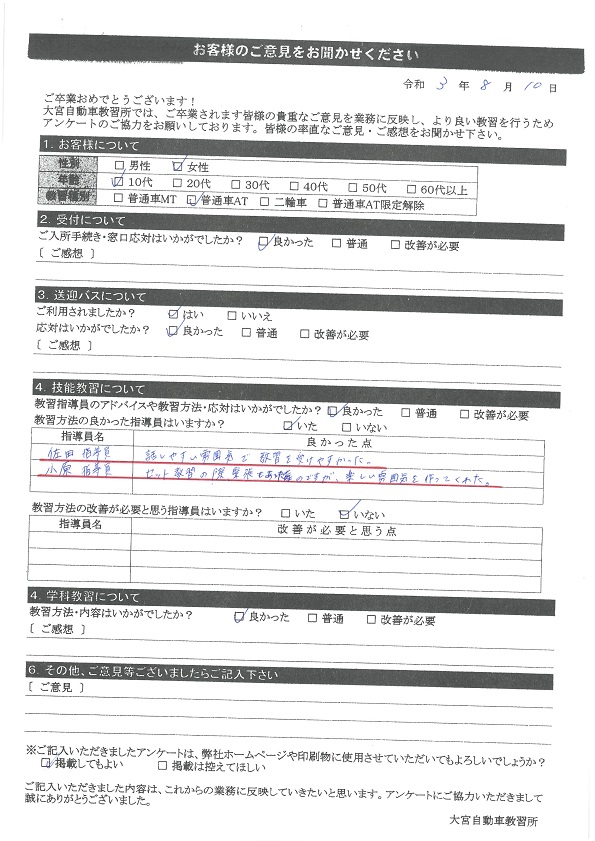 お客様のご意見をお聞かせください
令和 3 年 8 月 10 日
ご卒業おめでとうございます！
大宮自動車教習所では、ご卒業されます皆様の貴重なご意見を業務に反映し、より良い教習を行うため
アンケートのご協力をお願いしております。皆様の率直なご意見・ご感想をお聞かせ下さい。
1. お客様について
性別 □ 男性 ☑ 女性
年齢 ☑ 10代 □ 20代 □ 30代 □ 40代 □ 50代 □ 60代以上
教習種別 □ 普通車MT ☑ 普通車AT □ 二輪車 □ 普通車AT限定解除
2. 受付について
ご入所手続き・窓口応対はいかがでしたか？ ☑ 良かった □ 普通 □ 改善が必要
〔 ご感想 〕
3. 送迎バスについて
ご利用されましたか？ ☑ はい □ いいえ
応対はいかがでしたか？ ☑ 良かった □ 普通 □ 改善が必要
〔 ご感想 〕
4. 技能教習について
教習指導員のアドバイスや教習方法・応対はいかがでしたか？ ☑ 良かった □ 普通 □ 改善が必要
教習方法の良かった指導員はいますか？ ☑ いた □ いない
指導員名 良かった点
佐田 指導員 話しやすい雰囲気で教習を受けやすかった。
小原 指導員 セット教習の際緊張もあったのですが、楽しい雰囲気を作ってくれた。
教習方法の改善が必要と思う指導員はいますか？ □ いた ☑ いない
指導員名 改善が必要と思う点
4. 学科教習について
教習方法・内容はいかがでしたか？ ☑ 良かった □ 普通 □ 改善が必要
〔 ご感想 〕
6. その他、ご意見等ございましたらご記入下さい
〔 ご意見 〕
※ご記入いただきましたアンケートは、弊社ホームページや印刷物に使用させていただいてもよろしいでしょうか？
☑ 掲載してもよい □ 掲載は控えてほしい
ご記入いただきました内容は、これからの業務に反映していきたいと思います。アンケートにご協力いただきまして
誠にありがとうございました。
大宮自動車教習所